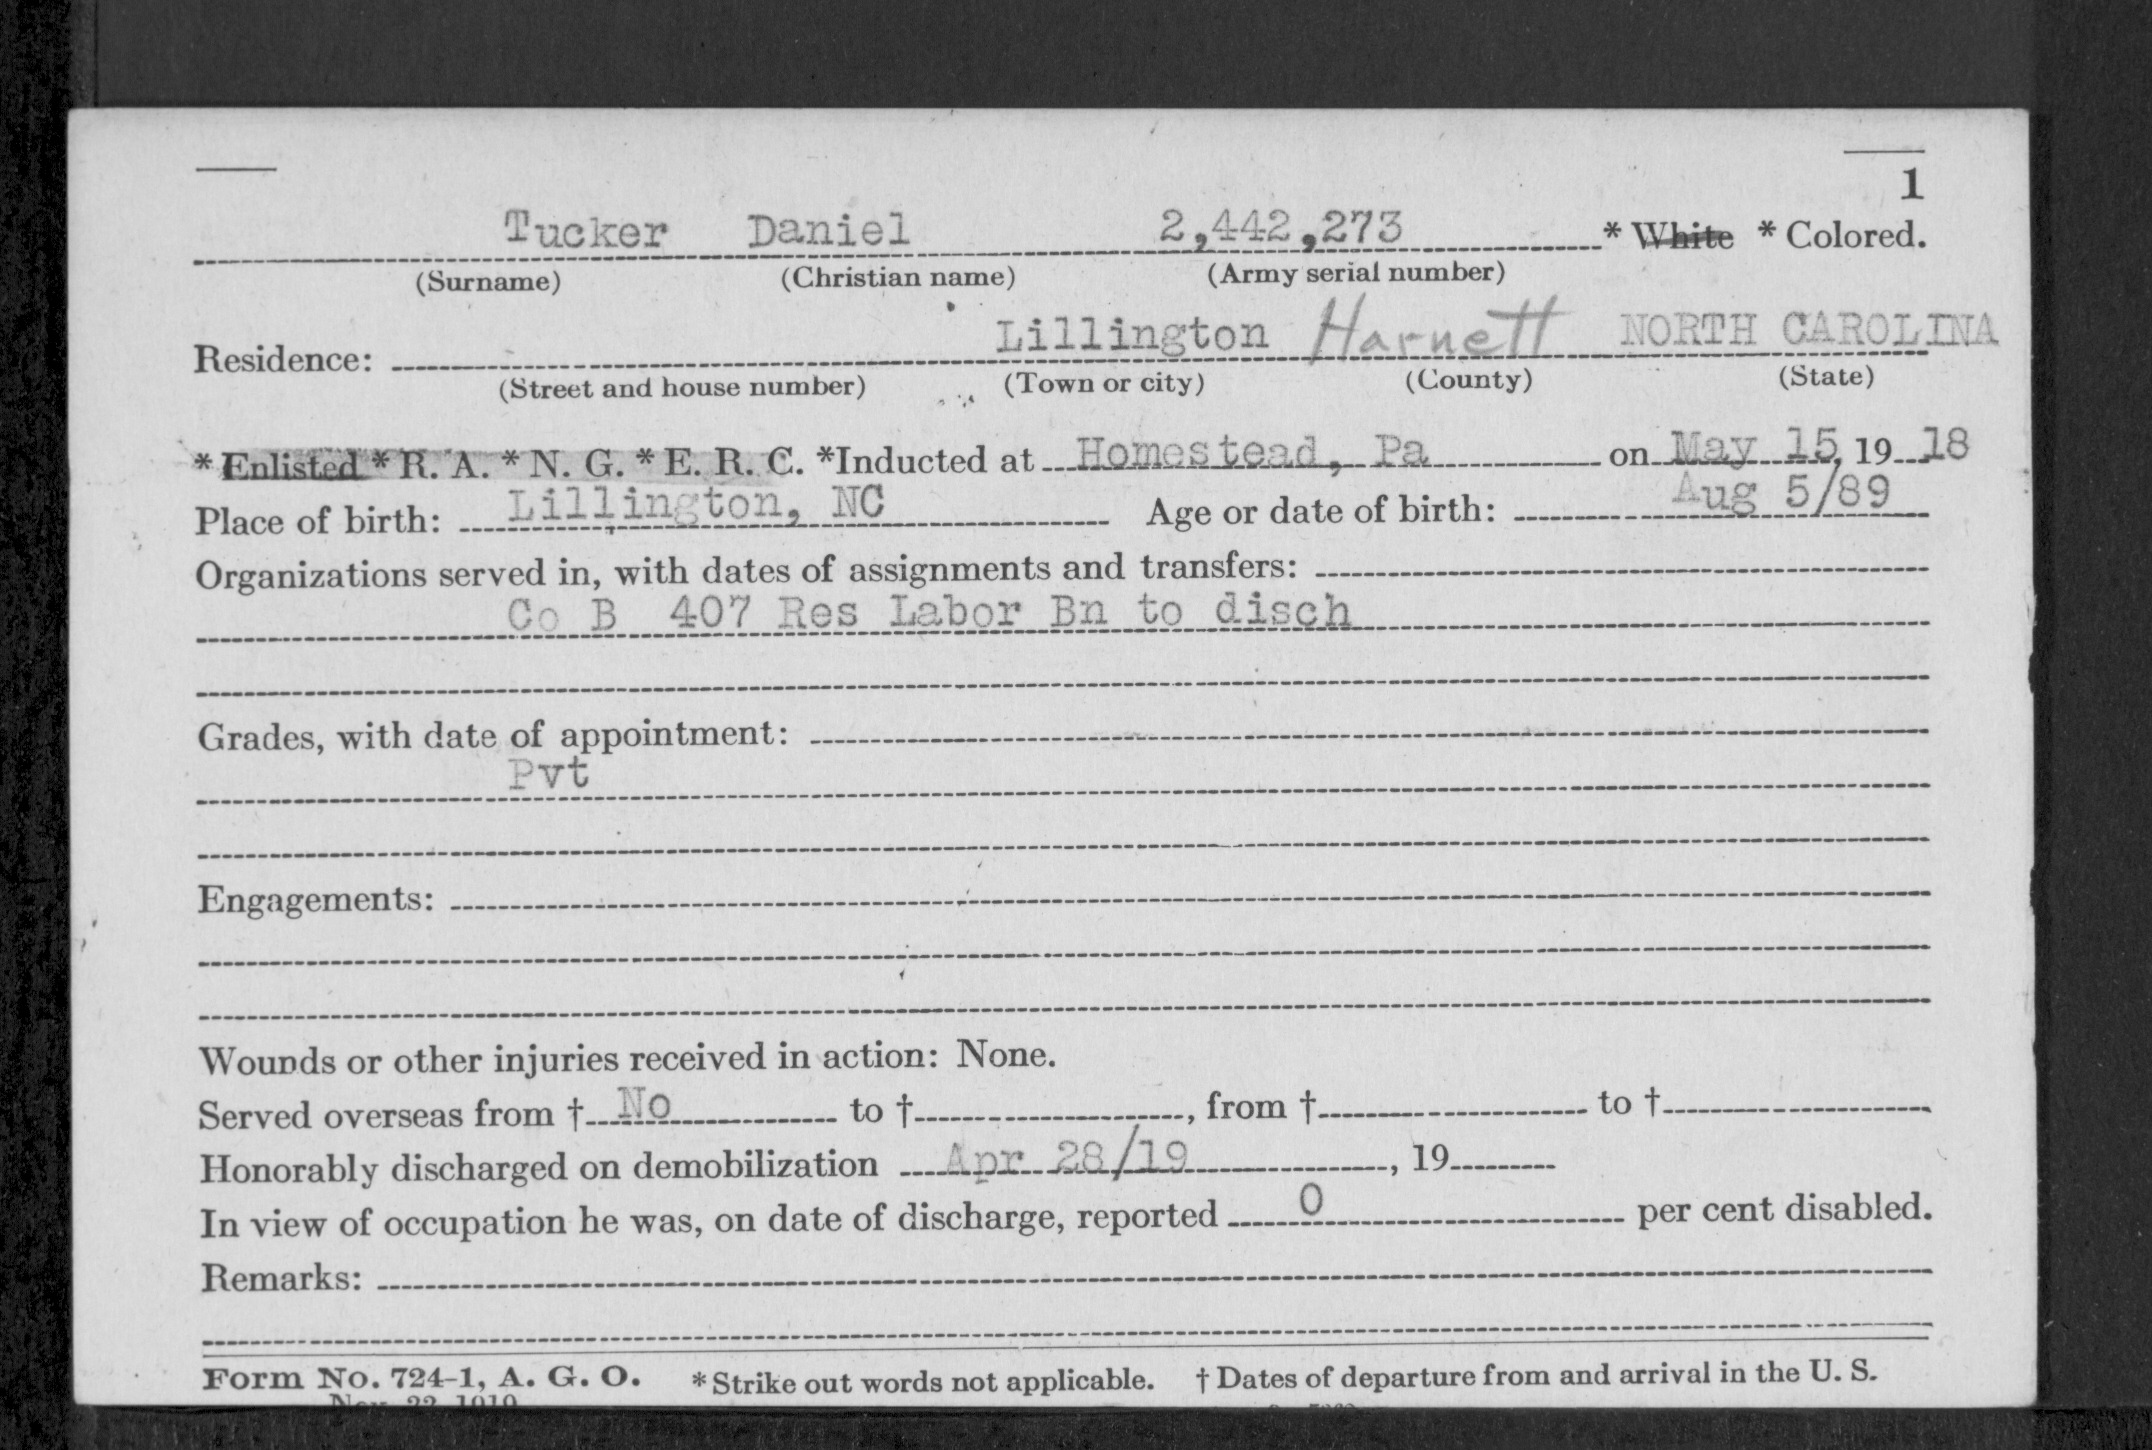 1
Tucker Daniel 2,442,273 * White * Colored.
(Surname) (Christian name) (Army serial number)
Residence: Lillington Harnett NORTH CAROLINA
(Street and house number) (Town or city) (County) (State)
* Enlisted * R. A. * N. G. * E. R. C. *Inducted at Homestead, Pa on May 15, 19 18
Place of birth: Lillington, NC Age or date of birth: Aug 5/89
Organizations served in, with dates of assignments and transfers:
Co B 407 Res Labor Bn to disch
Grades, with date of appointment:
Pvt
Engagements:
Wounds or other injuries received in action: None.
Served overseas from † No to †, from † to †
Honorably discharged on demobilization Apr 28/19, 19
In view of occupation he was, on date of discharge, reported 0 per cent disabled.
Remarks:
Form No. 724-1, A. G. O. * Strike out words not applicable. † Dates of departure from and arrival in the U. S.
Nov. 22, 1919